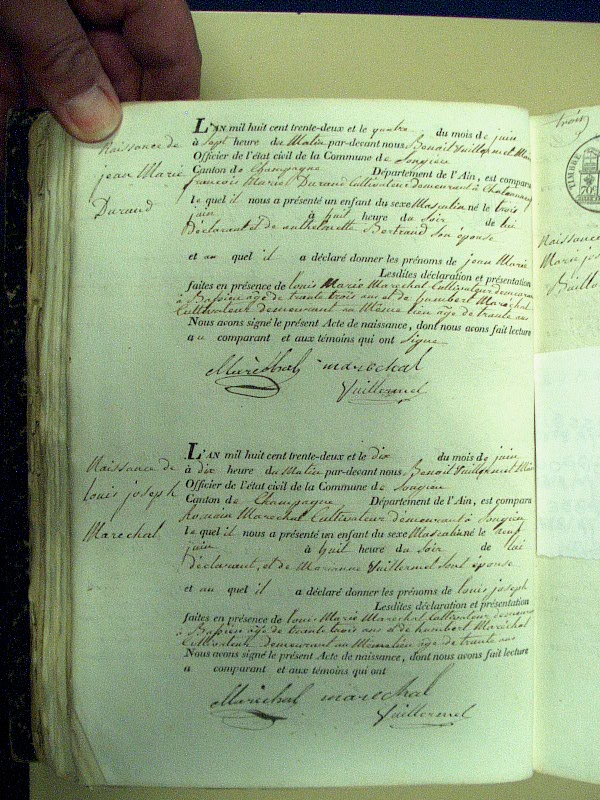 Naissance de
jean Marie
Durand
L'AN mil huit cent trente-deux et le quatre du mois de juin
à sept heure du Matin par-devant nous Benoit Vuillermet Maire
Officier de l'état civil de la Commune de Songieu
Canton de Champagne Département de l'Ain, est comparu
francois Marie Durand Cultivateur demeurant à
le quel il nous a présenté un enfant du sexe Masculin né le trois
juin à huit heure du Soir de lui
Déclarant et de anthelmette Bertrand Son épouse
et au quel il a déclaré donner les prénoms de jean Marie
Lesdites déclaration et présentation
faites en présence de louis Marie Marechal Cultivateur demeurant
à Bassieu age de trante trois ans et de humbert Maréchal
Cultivateur demeurant au Même lieu age de trante ans
Nous avons signé le présent Acte de naissance, dont nous avons fait lecture
au comparant et aux témoins qui ont Signe
Maréchal marechal
Vuillermet
Naissance de
louis joseph
Marechal
L'AN mil huit cent trente-deux et le dix du mois de juin
à dix heure du Matin par-devant nous Benoit Vuillermet Maire
Officier de l'état civil de la Commune de Songieu
Canton de Champagne Département de l'Ain, est comparu
Romain Marechal Cultivateur demeurant à Songieu
le quel il nous a présenté un enfant du sexe Masculin né le neuf
juin à huit heure du Soir de lui
déclarant, et de Marianne Vuillermet Son épouse
et au quel il a déclaré donner les prénoms de louis joseph
Lesdites déclaration et présentation
faites en présence de louis Marie Marechal Cultivateur demeurant
à Bassieu age de trante trois ans et de humbert Maréchal
Cultivateur demeurant au Meme lieu age de trante ans
Nous avons signé le présent Acte de naissance, dont nous avons fait lecture
a comparant et aux témoins qui ont
Maréchal marechal
Vuillermet
trois
TIMBRE
70
Naissance
Marie jos